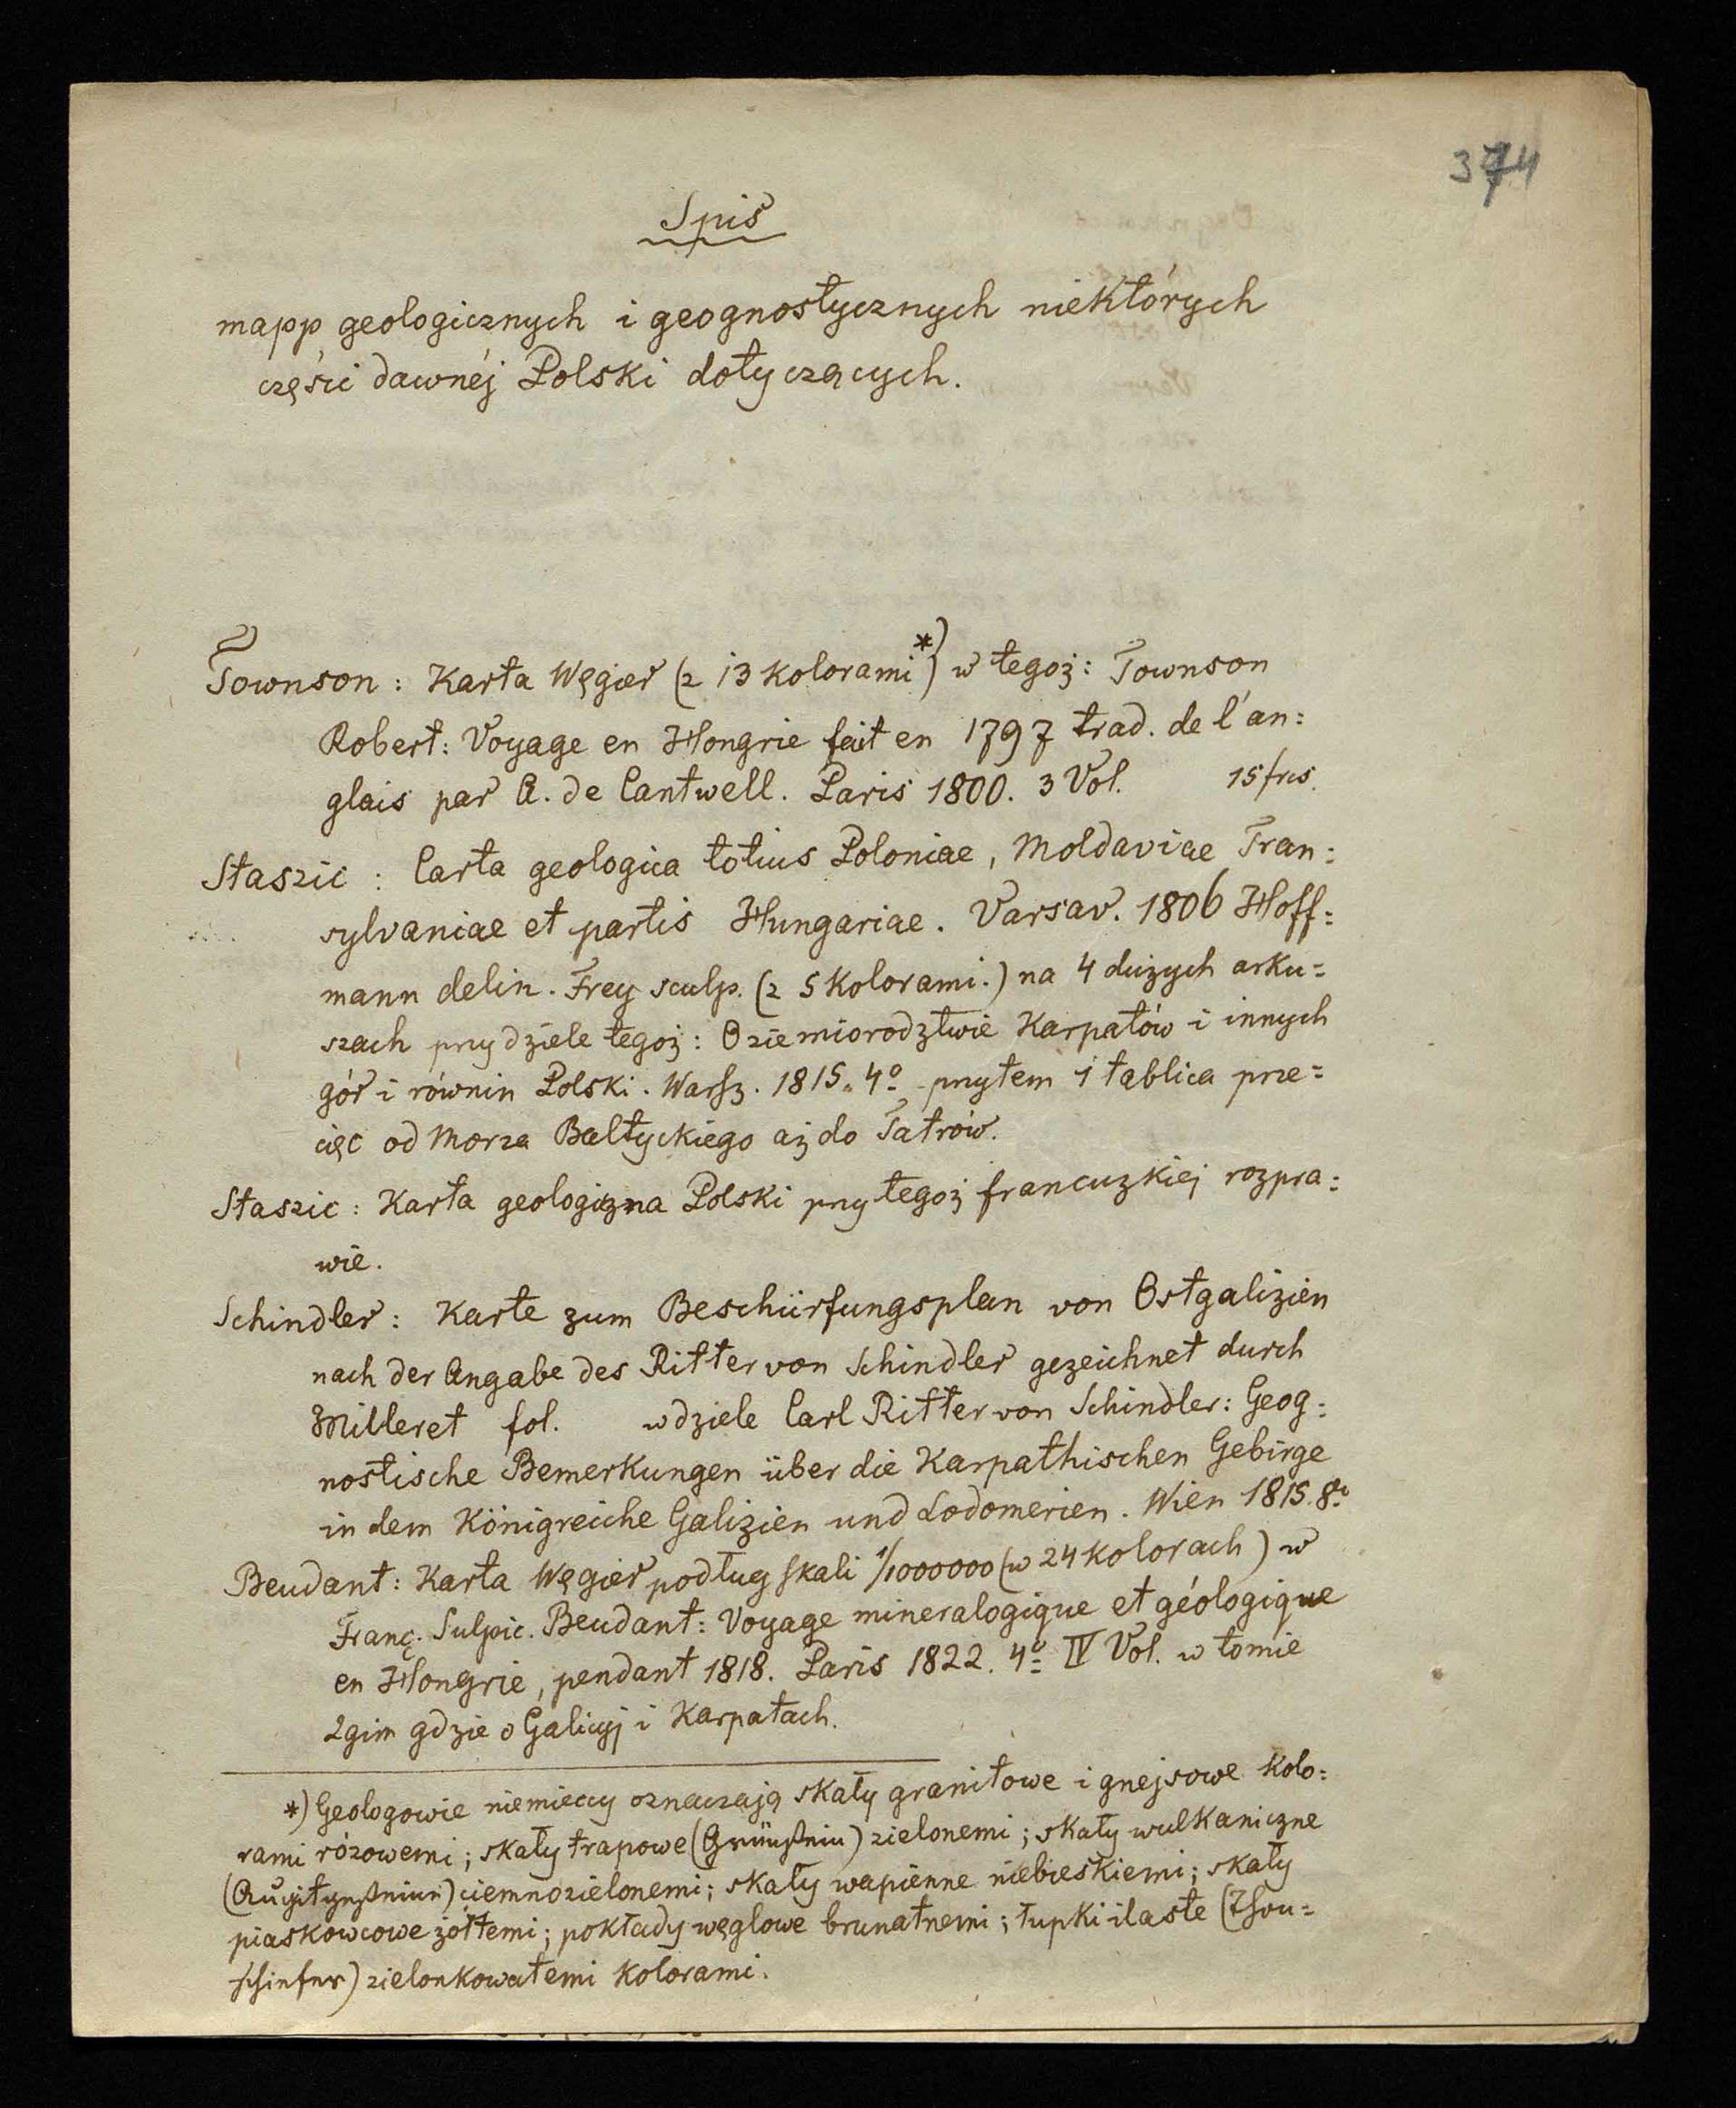 374
Spis
mapp geologicznych i geognostycznych niektórych
części dawnéj Polski dotyczących.
Townson: Karta Węgier (z 13 kolorami*) w tegoż: Townson
Robert: Voyage en Hongrie fait en 1797 trad. de l'an=
glais par C. de Cantwell. Paris 1800. 3 Vol. 15 frcs.
Staszic: Carta geologica totius Poloniae, Moldaviae Tran=
sylvaniae et partis Hungariae. Varsav. 1806 Hoff=
mann delin. Frey sculp. (z 5 kolorami.) na 4 dużych arku=
szach przy dziele tegoż: O ziemiorodztwie Karpatów i innych
gór i równin Polski. Warsz. 1815. 4º przytem 1 tablica prze=
cięć od Morza Baltyckiego aż do Tatrów.
Staszic: Karta geologiczna Polski przy tegoż francuzkiej rozpra=
wie.
Schindler: Karte zum Beschürfungsplan von Ostgalizien
nach der Angabe des Ritter von Schindler gezeichnet durch
Milleret fol. w dziele Carl Ritter von Schindler: Geog=
nostische Bemerkungen über die Karpathischen Gebirge
in dem Königreiche Galizien und Lodomerien. Wien 1815. 8º
Beudant: Karta Węgier podług skali 1/1000000 (w 24 kolorach) w
Franç. Sulpic. Beudant: Voyage mineralogique et géologique
en Hongrie, pendant 1818. Paris 1822. 4º IV Vol. w tomie
2gim gdzie o Galicyj i Karpatach.
*) Geologowie niemieccy oznaczają skały granitowe i gnejsowe kolo=
rami rózowemi; skały trapowe (Grünstein) zielonemi; skały wulkaniczne
(Augitgestein) ciemnozielonemi; skały wapienne niebieskiemi; skały
piaskowcowe żółtemi; pokłady węglowe brunatnemi; łupki ilaste (Thon=
schiefer) zielonkowatemi kolorami.